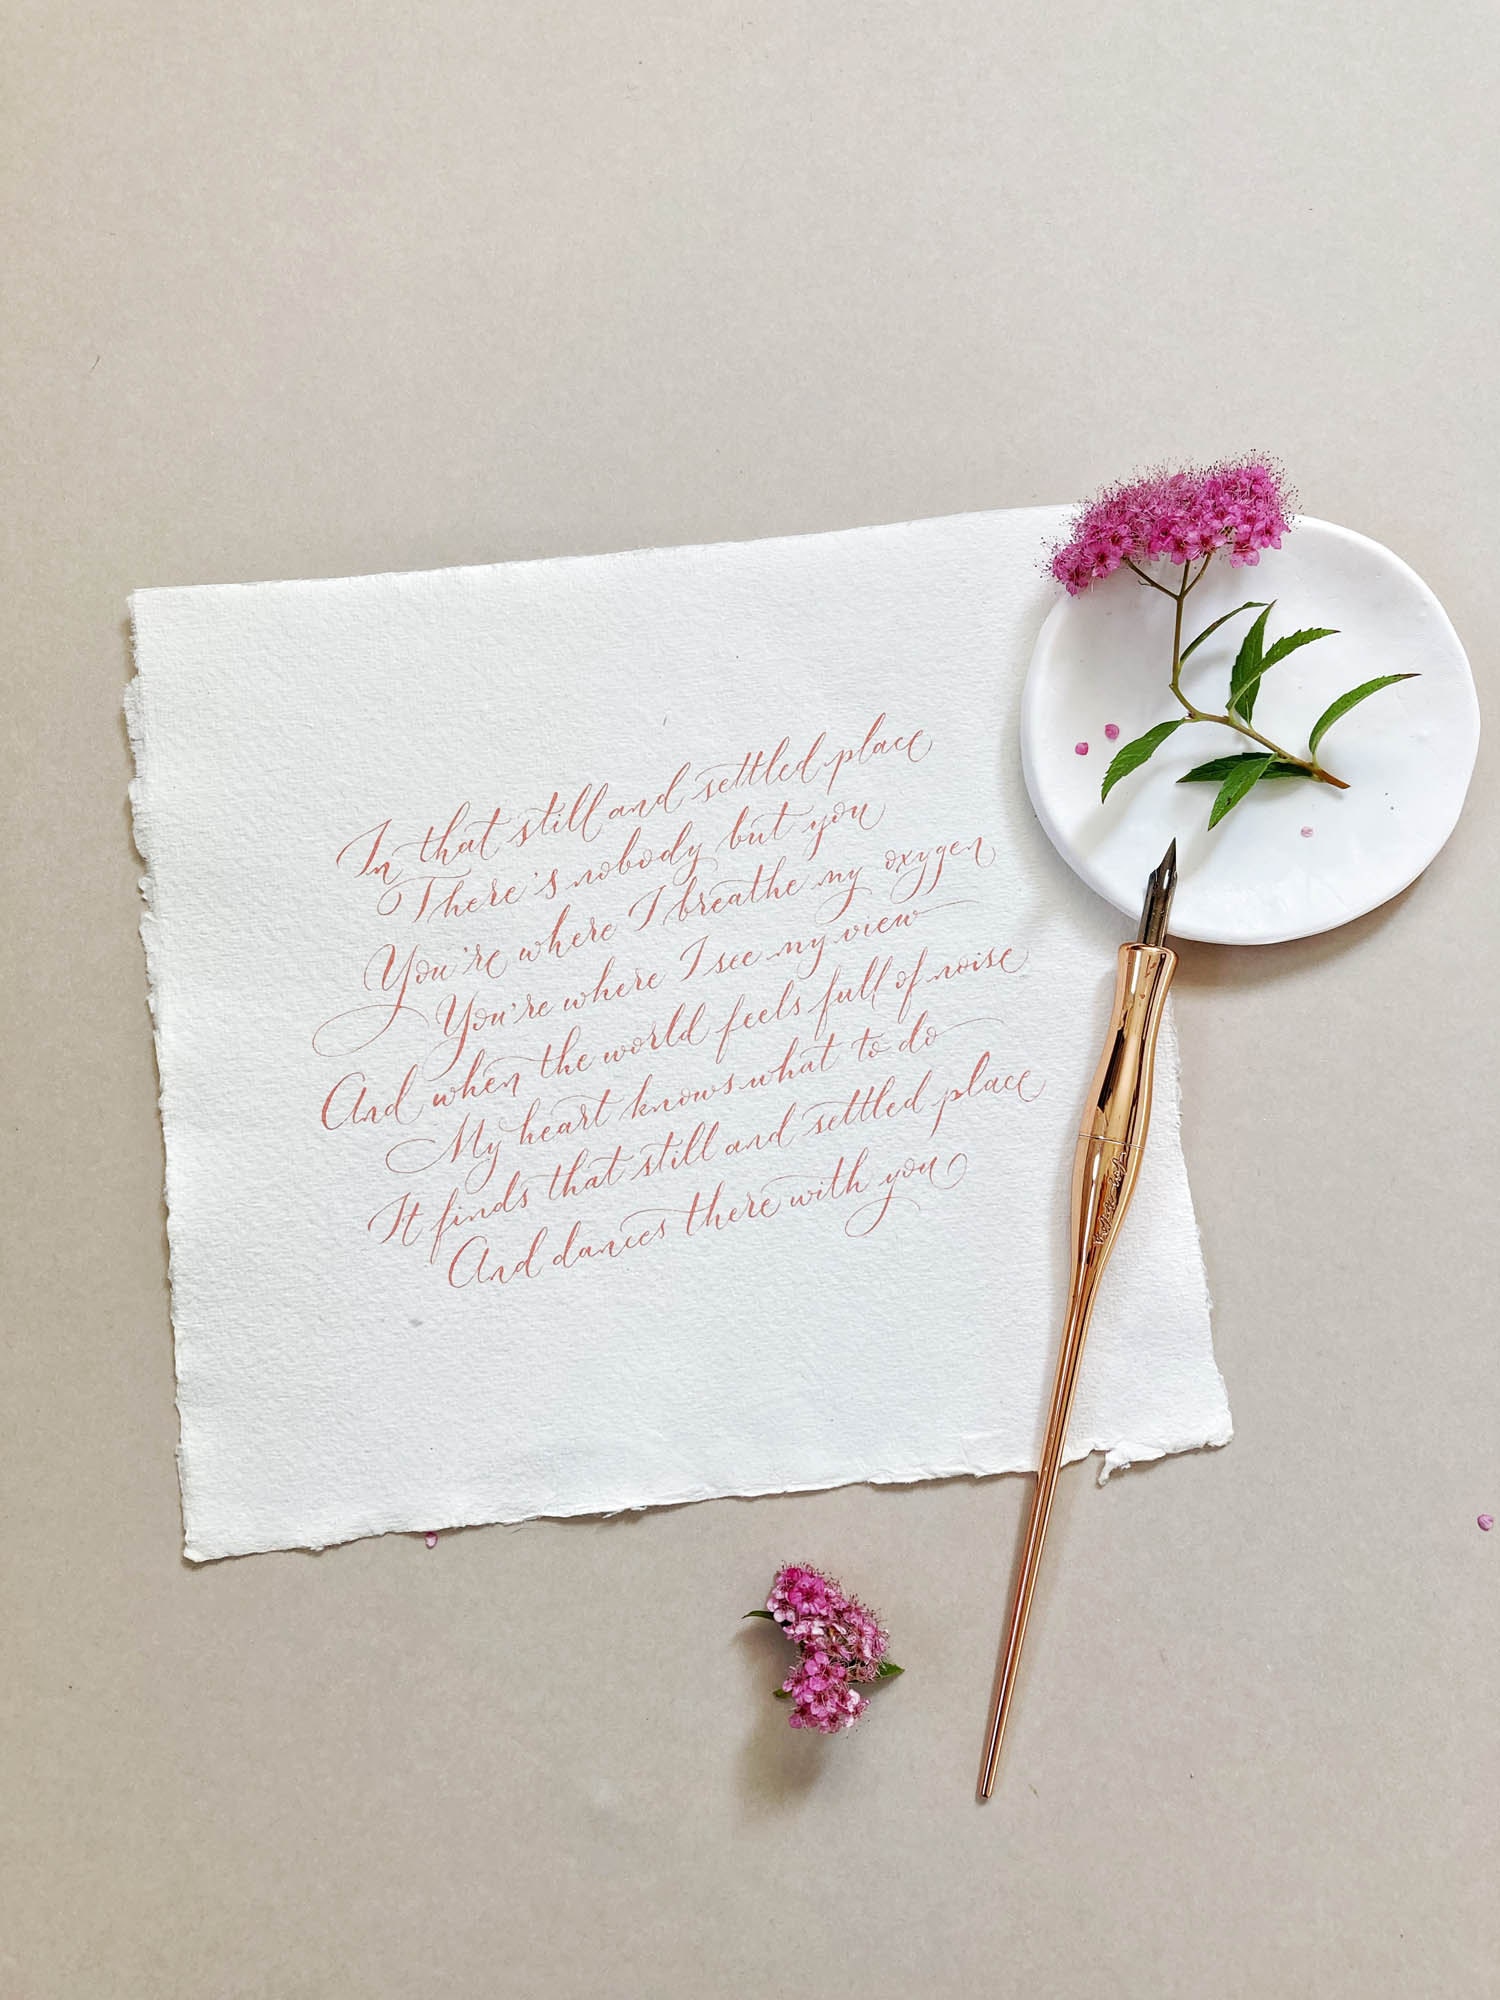 In that still and settled place
There's nobody but you
You're where I breathe my oxygen
You're where I see my view
And when the world feels full of noise
My heart knows what to do
It finds that still and settled place
And dances there with you